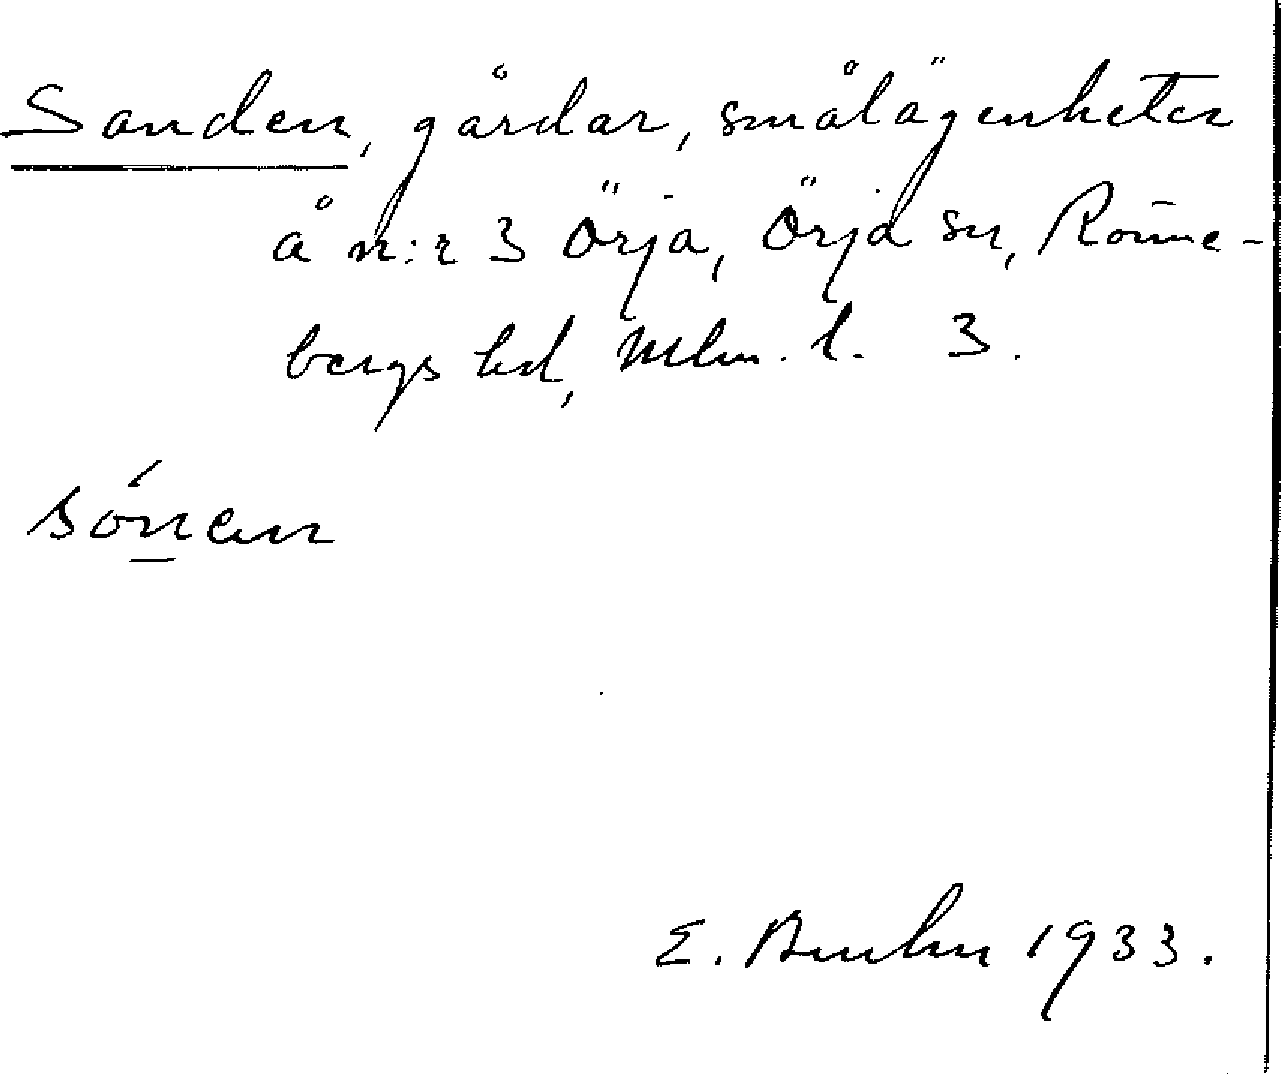 Sanden, gårdar, smålägenheter
å n:r 3 Örja, Örja sn, Rönne-
bergs hd, Mlm. l. 3.
sónen
E. Bruhn 1933.